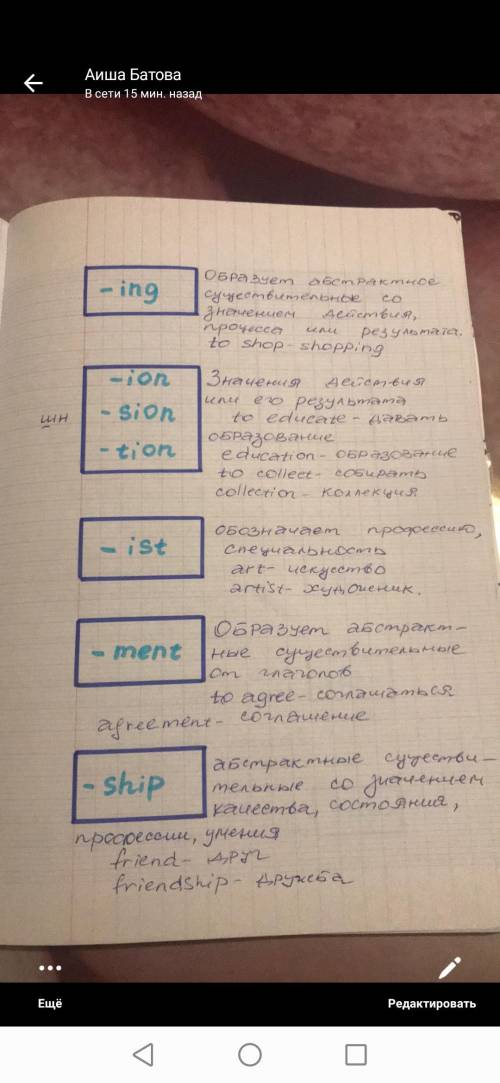 Аиша Батова
В сети 15 мин. назад
-ing
Образует абстрактное
существительные со
значением действия,
процесса или результата.
to shop - shopping
шн
-ion
-sion
-tion
Значения действия
или его результата
to educate - давать
образование
education - образование
to collect - собирать
collection - коллекция
-ist
обозначает профессию,
специальность
art - искусство
artist - художник.
-ment
Образует абстракт-
ные существительные
от глаголов
to agree - соглашаться
agreement - соглашение
-ship
абстрактные существи-
тельные со значением
качества, состояния,
профессии, умения
friend - друг
friendship - дружба
Ещё
Редактировать